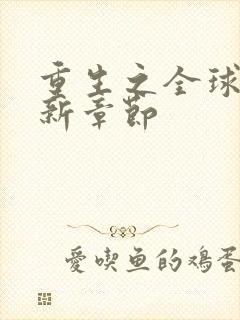 重生之全球
新章节
愛喫鱼的鸡蛋